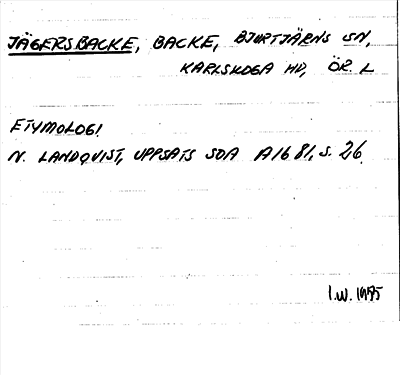 JÄGERSBACKE, BACKE, BJURTJÄRNS SN,
KARLSKOGA HD, ÖR. L
ETYMOLOGI
N. LANDQVIST, UPPSATS SOA A1681, S. 26.
I.W. 1975